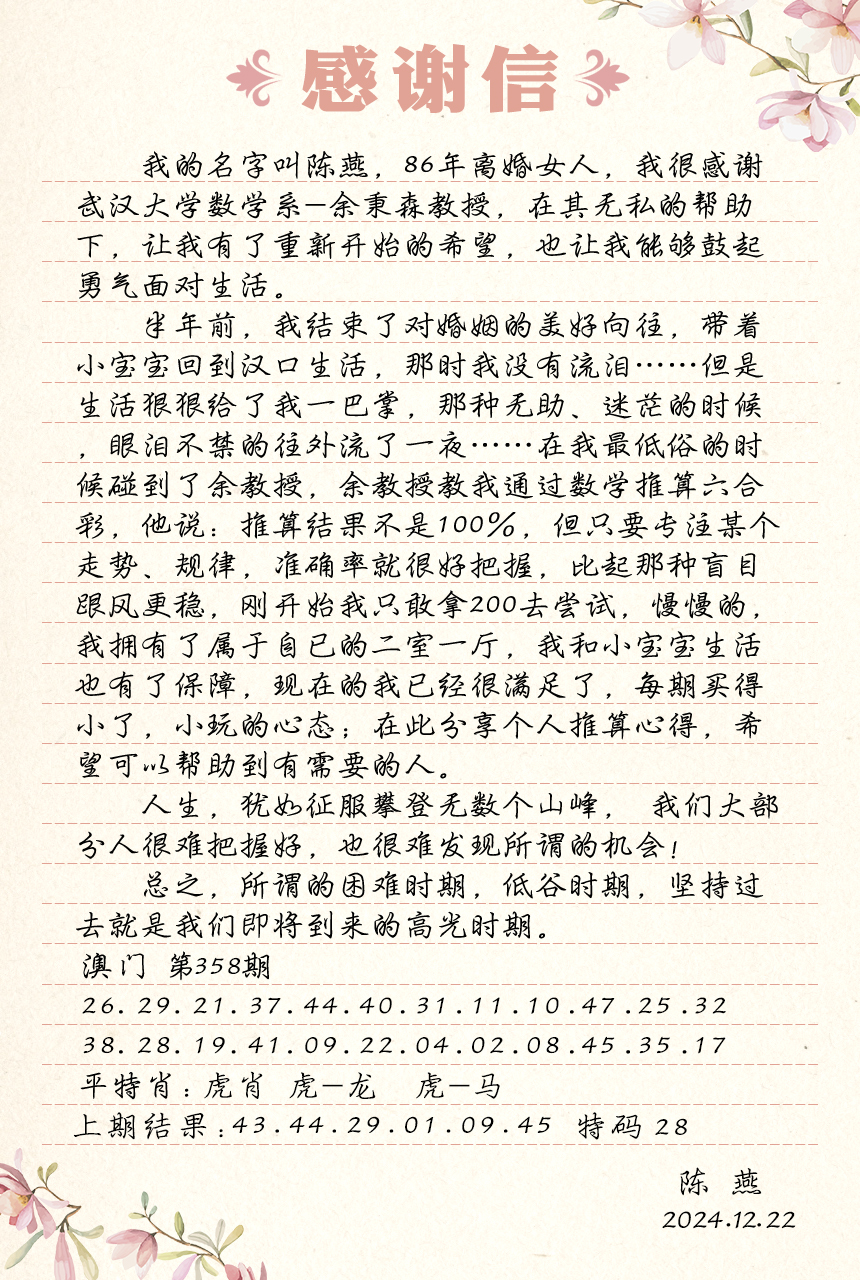 感谢信
我的名字叫陈燕，86年离婚女人，我很感谢
武汉大学数学系—余秉森教授，在其无私的帮助
下，让我有了重新开始的希望，也让我能够鼓起
勇气面对生活。
半年前，我结束了对婚姻的美好向往，带着
小宝宝回到汉口生活，那时我没有流泪……但是
生活狠狠给了我一巴掌，那种无助、迷茫的时候
，眼泪不禁的往外流了一夜……在我最低俗的时
候碰到了余教授，余教授教我通过数学推算六合
彩，他说：推算结果不是100%，但只要专注某个
走势、规律，准确率就很好把握，比起那种盲目
跟风更稳，刚开始我只敢拿200去尝试，慢慢的，
我拥有了属于自已的二室一厅，我和小宝宝生活
也有了保障，现在的我已经很满足了，每期买得
小了，小玩的心态；在此分享个人推算心得，希
望可以帮助到有需要的人。
人生，犹如征服攀登无数个山峰， 我们大部
分人很难把握好，也很难发现所谓的机会！
总之，所谓的困难时期，低谷时期，坚持过
去就是我们即将到来的高光时期。
澳门 第358期
26.29.21.37.44.40.31.11.10.47.25.32
38.28.19.41.09.22.04.02.08.45.35.17
平特肖：虎肖 虎—龙 虎—马
上期结果：43.44.29.01.09.45 特码 28
陈 燕
2024.12.22